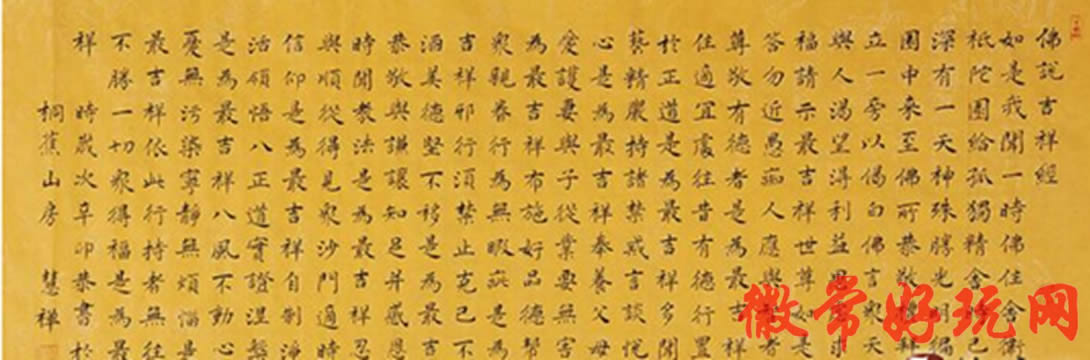 佛說吉祥經
如是我聞一時佛住舍衛
祇陀園給孤獨精舍時已
深有一天神殊勝光明徧
園中來至佛所恭敬禮
立一旁以偈白佛言眾天
與人渴望得利益思
福請示最吉祥世尊如是
答勿近愚痴人應與者
尊敬有德者是為最吉祥
住適宜處往昔有德行置
於正道是為最吉祥多聞
藝精嚴持諸禁戒言談悅
心是為最吉祥奉養父母
愛護妻與子從業要無害
為最吉祥布施好品德幫
眾親眷行為無暇疵是為
吉祥邪行須禁止克己不
酒美德堅不移是為最吉
恭敬與謙讓知足并感恩
時聞教法是為最吉祥忍
與順從得見眾沙門適時
信仰是為最吉祥自制淨
活領悟八正道實證涅槃
是為最吉祥八風不動心
憂無污染寧靜無煩惱是
最吉祥依此行持者無往
不勝一切眾得福是為最
祥 時歲次辛卯恭書於
桐蕉山房 慧禅
好玩网